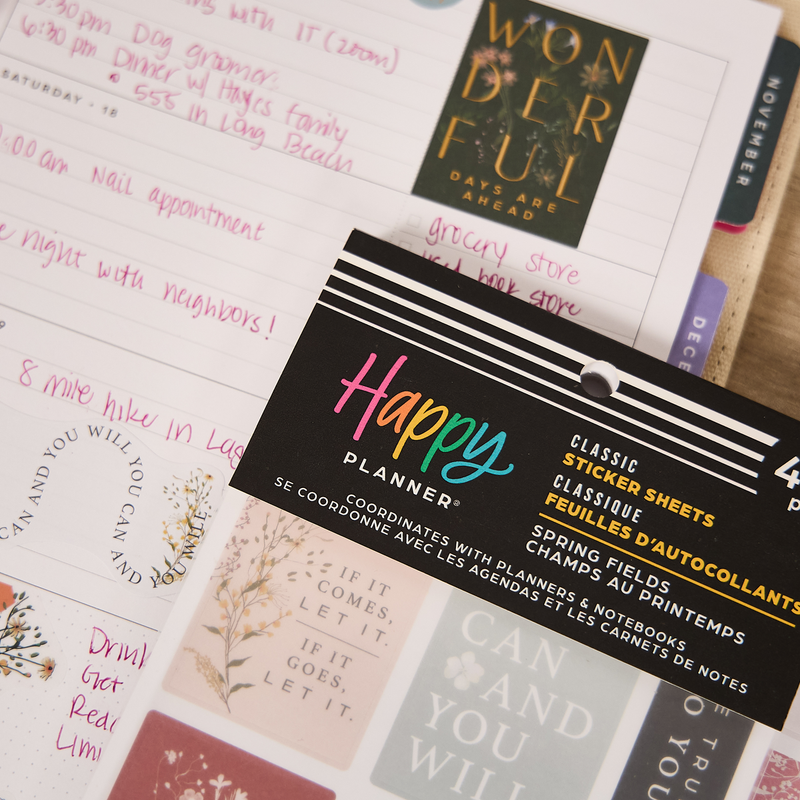 with IT (zoom)
:30 pm Dog groomer
6:30 pm Dinner w/ Hayes family
555 in Long Beach
SATURDAY • 18
:00 am Nail appointment
night with neighbors!
8 mile hike in
CAN AND YOU WILL YOU CAN AND YOU WILL
Drink
Get
WONDERFUL
DAYS ARE
AHEAD
grocery store
book store
NOVEMBER
DECE
Happy
PLANNER®
CLASSIC
STICKER SHEETS
CLASSIQUE
FEUILLES D'AUTOCOLLANTS
SPRING FIELDS
CHAMPS AU PRINTEMPS
COORDINATES WITH PLANNERS & NOTEBOOKS
SE COORDONNE AVEC LES AGENDAS ET LES CARNETS DE NOTES
4
IF IT
COMES,
LET IT.
IF IT
GOES,
LET IT.
CAN
AND
YOU
WILL
TRU
O YOU